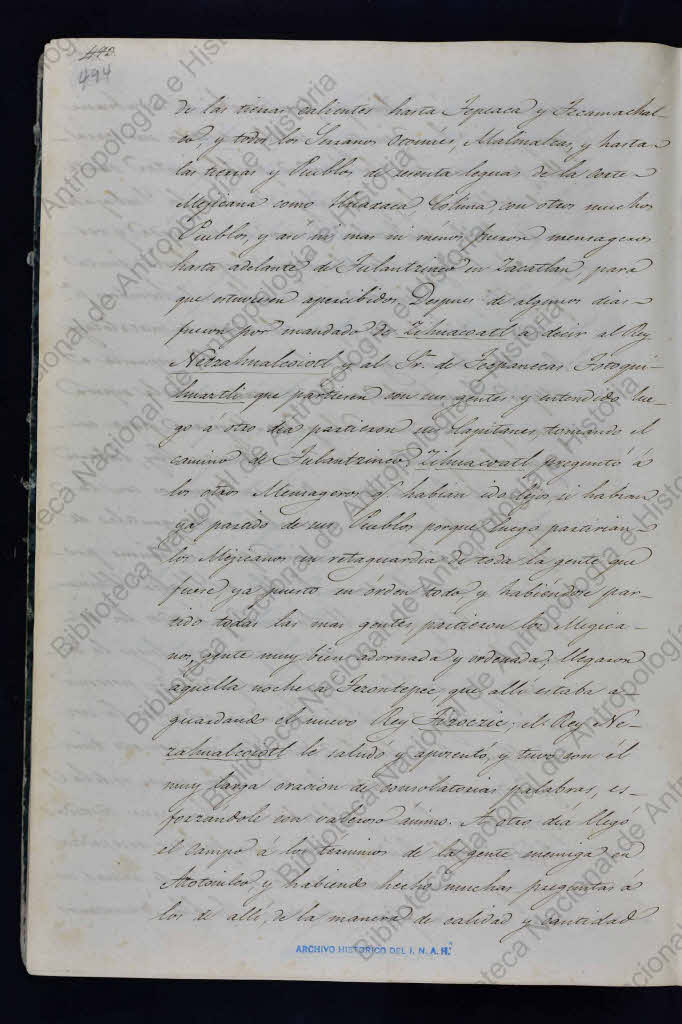 492.
494
de las tierras calientes hasta Tepeaca y Tecamachal-
co, y todos los Serranos Otomies, Malinalcas, y hasta
las tierras y Pueblos de sesenta leguas de la corte
Mejicana como Huaxaca, Colima, con otros muchos
Pueblos, y asi ni mas ni menos fueron mensageros
hasta adelante de Tulantzinco en Zacatlan, para
que estuviesen apercibidos. Despues de algunos dias
fueron por mandado de Zihuacoatl a decir al Rey
Netzahualcoiotl y al Sr. de Tecpanecas Totoqui-
huaztli que partiesen con sus gentes y entendido lue-
go á otro dia partieron sus Capitanes, tomando el
camino de Tulantzinco, Zihuacoatl preguntó á
los otros Mensageros q. habian ido lejos, si habian
ya partido de sus Pueblos porque luego partirian
los Mejicanos en retaguardia de toda la gente que
fuese, ya puesto en órden todo, y habiéndose par-
tido todas las mas gentes, partieron los Megica-
nos, gente muy bien adornada y ordenada; llegaron
aquella noche a Tezontepec, que allí estaba a-
guardando el nuevo Rey Tizoczic; el Rey Ne-
zahualcoiotl le saludo y aposentó, y tuvo con él
muy larga oracion de consolatorias palabras, es-
forzandole con valeroso ánimo. A otro dia llegó
el campo á los terminos de la gente enemiga, en
Atotonilco, y habiendo hecho muchas preguntas á
los de allí, de la manera de calidad y cantidad
ARCHIVO HISTORICO DEL I. N. A. H.
Biblioteca Nacional de Antropología e Historia